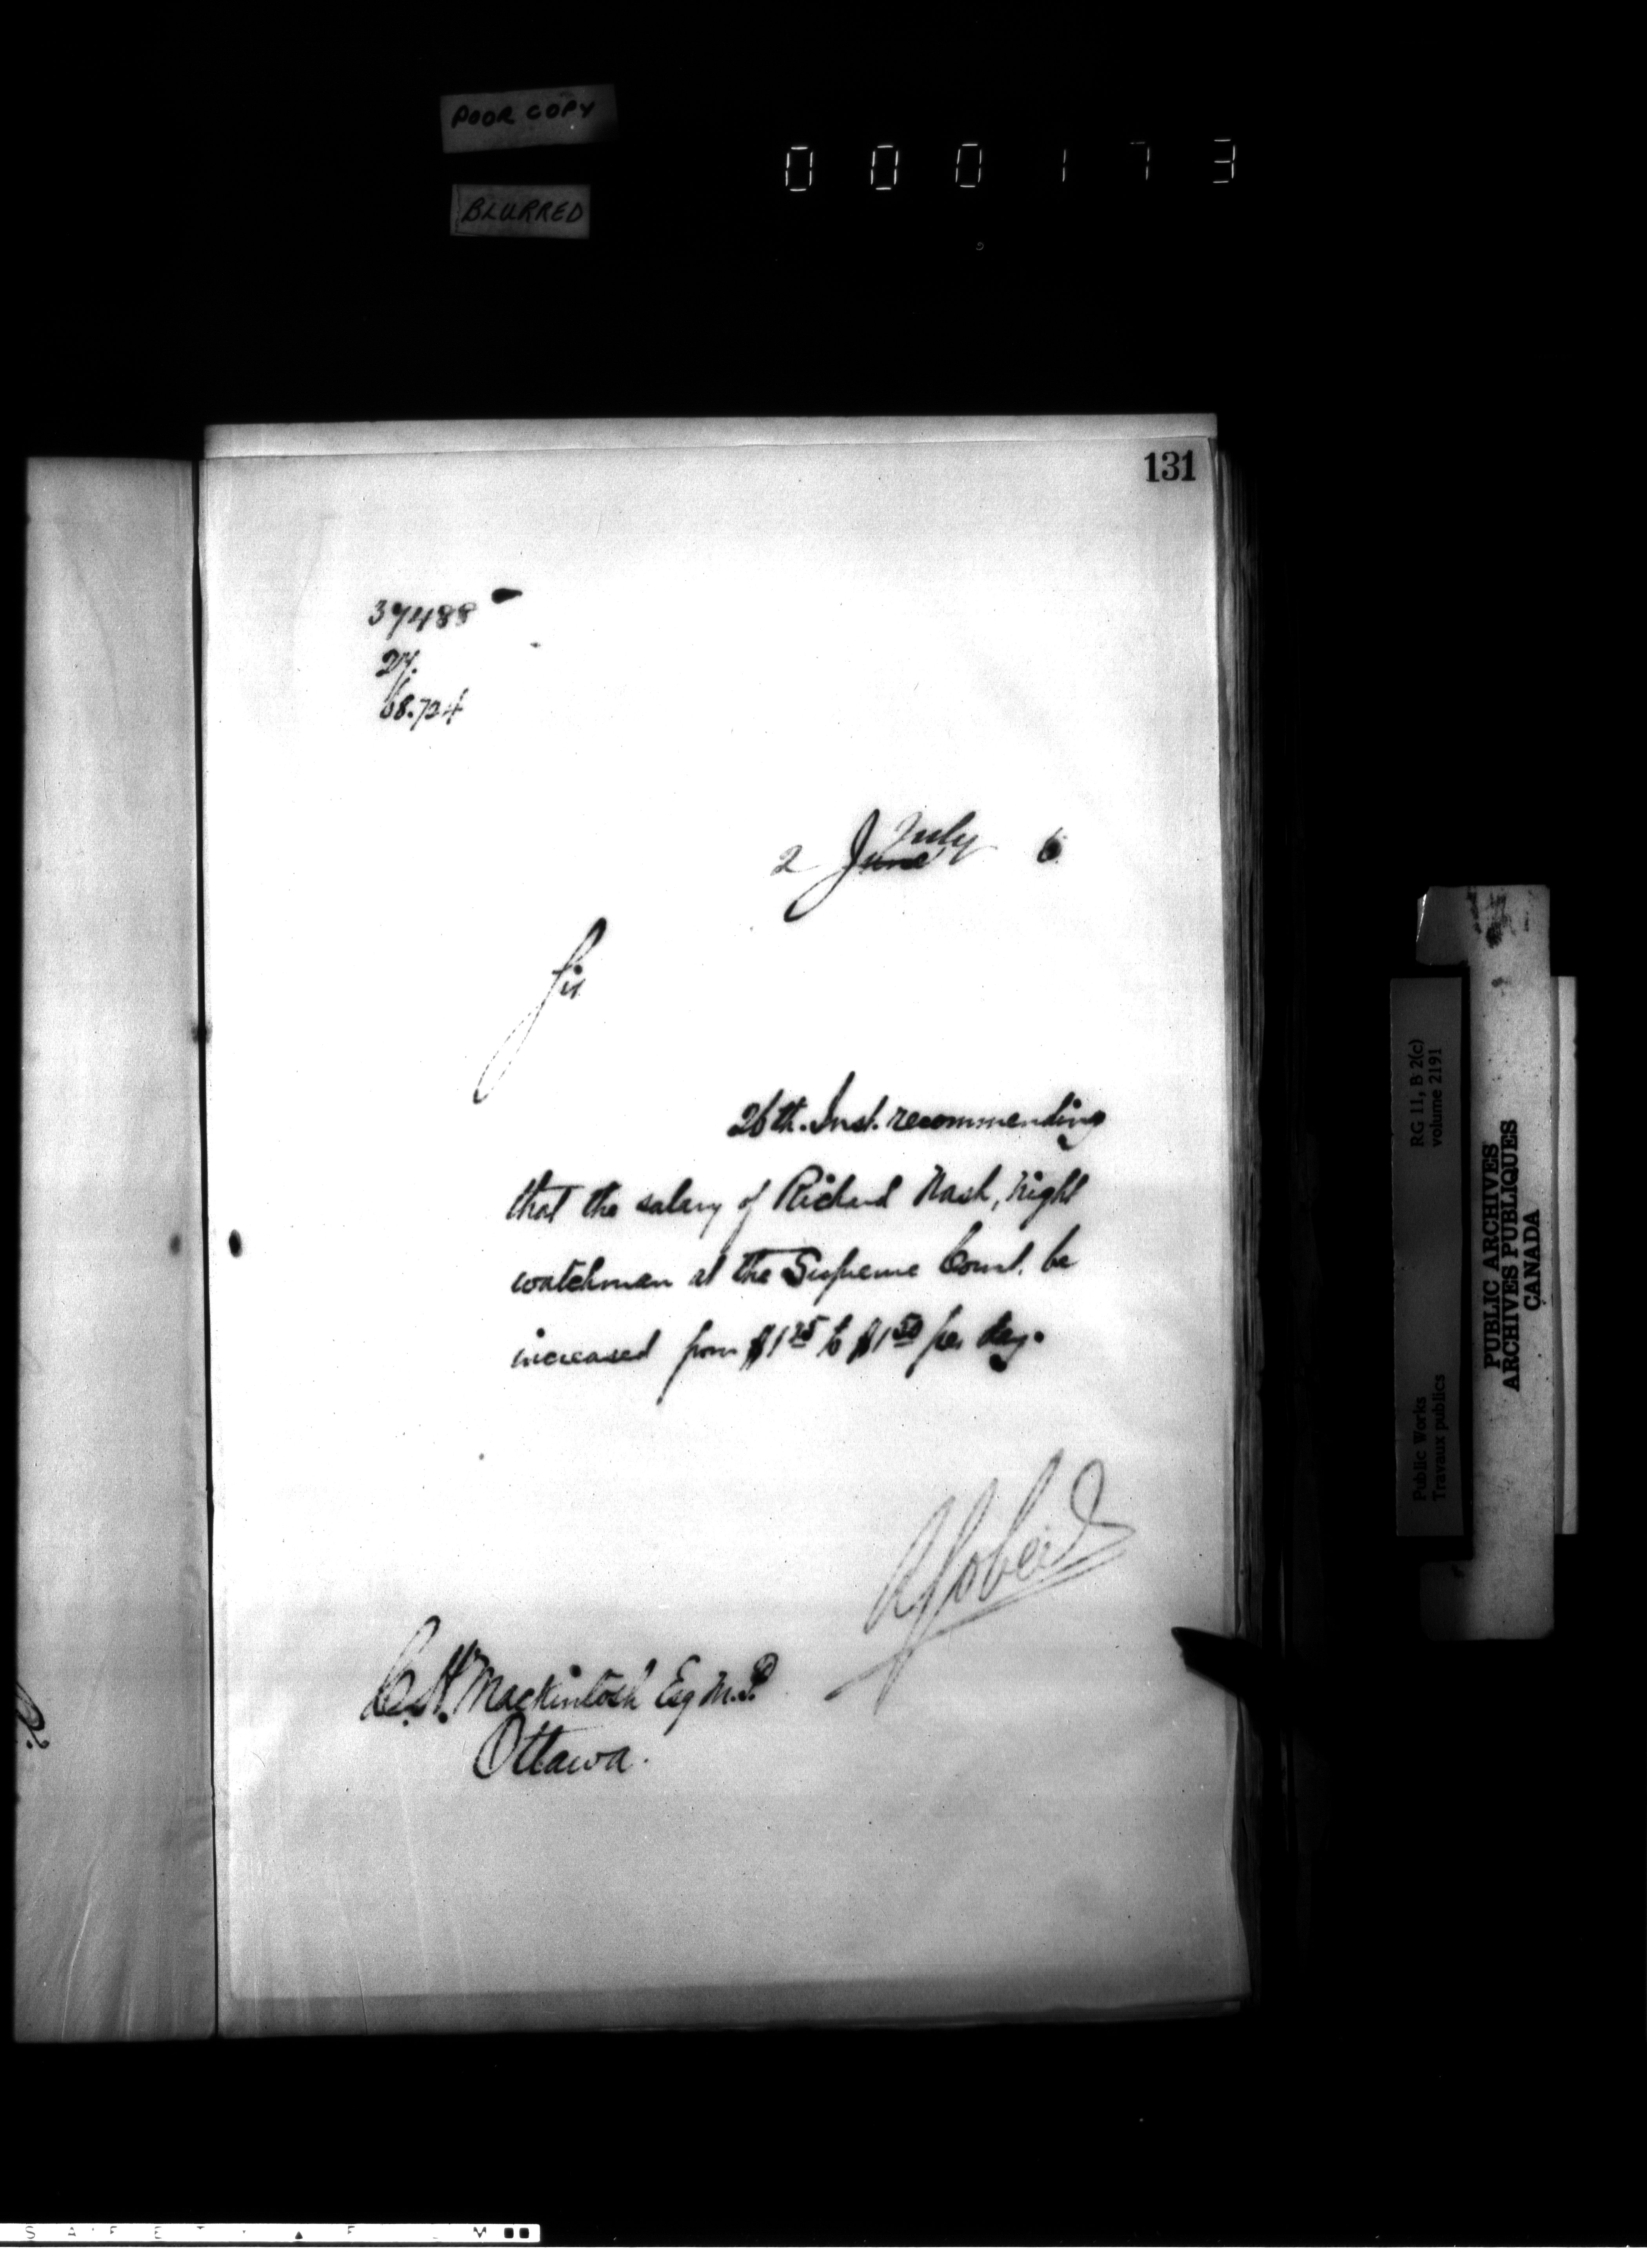 POOR COPY
000173
BLURRED
131
37488
27.
68.724
July
2 June 6
Sir
26th. Inst. recommending
that the salary of Richard Nash, night
watchman at the Supreme Court, be
increased from $1 25 to $1 50 per day.
C. H. Mackintosh Esq M.P.
Ottawa.
RG 11, B 2(c)
volume 2191
Public Works
Travaux publics
PUBLIC ARCHIVES
ARCHIVES PUBLIQUES
CANADA